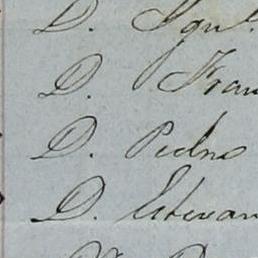 D. Ign.
D. Fran
D. Pedro
D. Estevan
D.